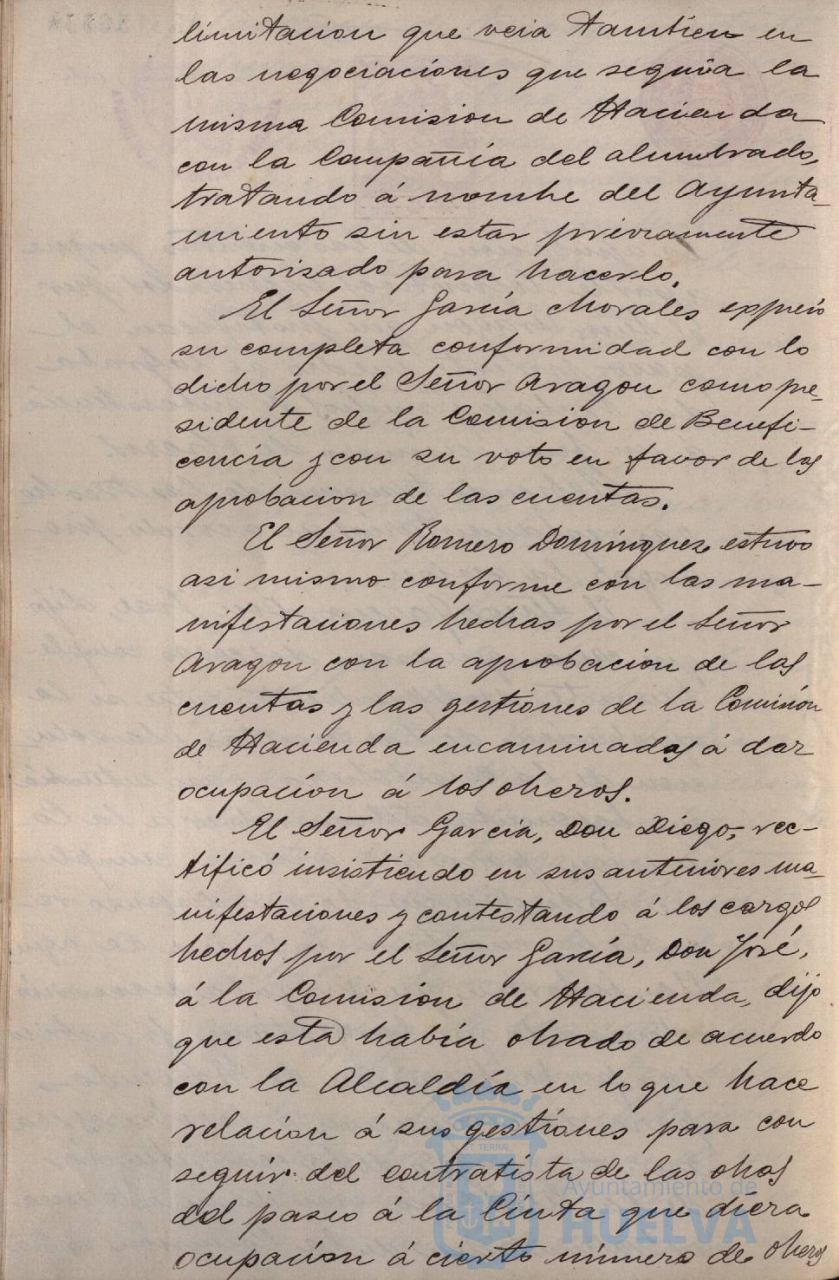 limitacion que veia tambien en
las negociaciones que seguia la
misma Comision de Hacienda
con la Compañía del alumbrado,
tratando á nombre del Ayunta-
miento sin estar préviamente
autorizado para hacerlo.
El Señor García Morales expresó
su completa conformidad con lo
dicho por el Señor Aragon como pre-
sidente de la Comision de Benefi-
cencia y con su voto en favor de las
aprobacion de las cuentas.
El Señor Romero Domínguez estuvo
asi mismo conforme con las ma-
nifestaciones hechas por el Señor
Aragon con la aprobacion de las
cuentas y las gestiones de la Comisión
de Hacienda encaminadas á dar
ocupación á los obreros.
El Señor García, Don Diego, rec-
tificó insistiendo en sus anteriores ma-
nifestaciones y contestando á los cargos
hechos por el Señor García, Don José,
á la Comisión de Hacienda, dijo
que esta había obrado de acuerdo
con la Alcaldía en lo que hace
relación á sus gestiones para con
seguir del contratista de las obras
del paseo á la Cinta que diera
ocupación á cierto número de obreros
Ayuntamiento de
HUELVA